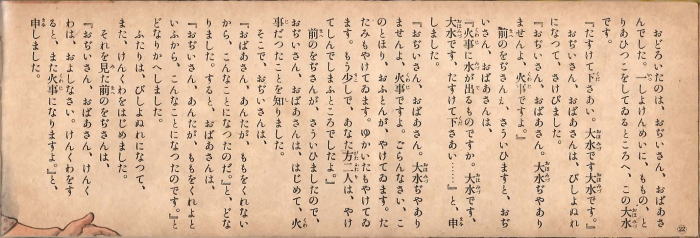 おどろいたのは、おぢいさん、おばあさ
んでした。一しよけんめいに、ももの、と
りあひつこをしてゐるところへ、この大水
です。
『たすけて下さあい。大水です大水です。』
おぢいさん、おばあさんは、びしよぬれ
になつて、さけびました。
『おぢいさん、おばあさん。大水ぢやあり
ませんよ。火事ですよ。』
前のをぢさんが、さういひますと、おぢ
いさん、おばあさんは
『火事に水が出るものですか。大水です、
大水です、たすけて下さあい……』と、申
しました。
『おぢいさん、おばあさん。大水ぢやあり
ませんよ、火事です。ごらんなさい、こ
のとほり、おふとんが、やけてゐます。た
たみもやけてゐます。ゆかいたもやけてゐ
ます。もう少しで、あなた方二人は、やけ
てしんでしまふところでしたよ。』
前のをぢさんが、さういひましたので、
おぢいさん、おばあさんは、はじめて、火
事だつたことを知りました。
そこで、おぢいさんは
『おばあさん、あんたが、ももをくれない
から、こんなことになつたのだ。』と、どな
りました。すると、おばあさんは
『おぢいさん、あんたが、ももをくれよと
いふから、こんなことになつたのです。』と
どなりかへしました。
ふたりは、びしよぬれになつて、
また、けんくわをはじめました。
それを見た前のをぢさんは、
『おぢいさん、おばあさん、けんく
わは、およしなさい。けんくわをす
ると、また火事になりますよ。』と、
申しました。
22